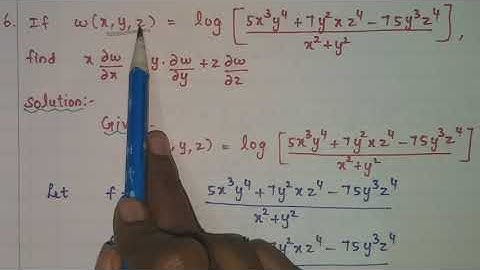 6. If w(x,y,z) = log [ (5x³y⁴ + 7y²xz⁴ - 75y³z⁴) / (x²+y²) ],
find x ∂w/∂x y. ∂w/∂y + z ∂w/∂z
Solution:-
,y,z) = log [ (5x³y⁴ + 7y²xz⁴ - 75y³z⁴) / (x²+y²) ]
Let f (5x³y⁴ + 7y²xz⁴ - 75y³z⁴) / (x²+y²)
y²xz⁴ - 75y³z⁴